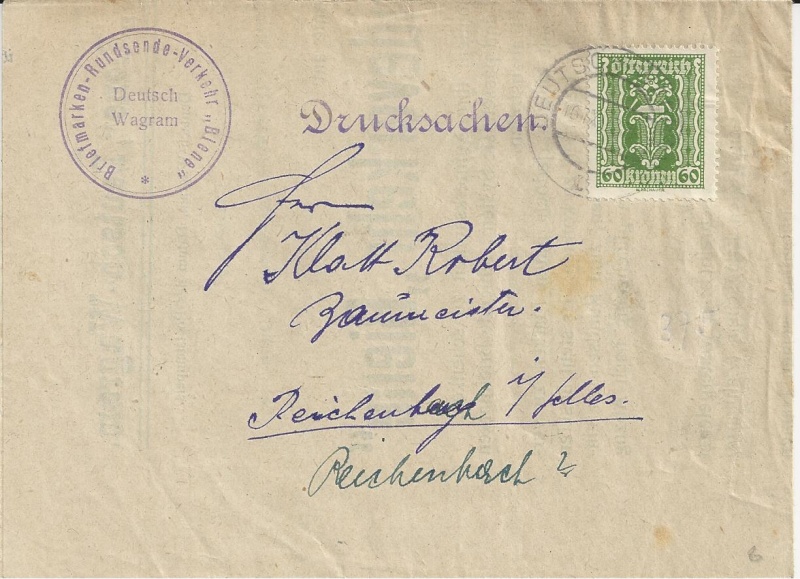 Briefmarken-Rundsende-Verkehr „Biene“
*
Deutsch
Wagram
Drucksachen
DEUTSCH
Österreich
60 Kronen 60
Herr
Klatt Robert
Baumeister.
Reichenbach i/
Reichenbach ?